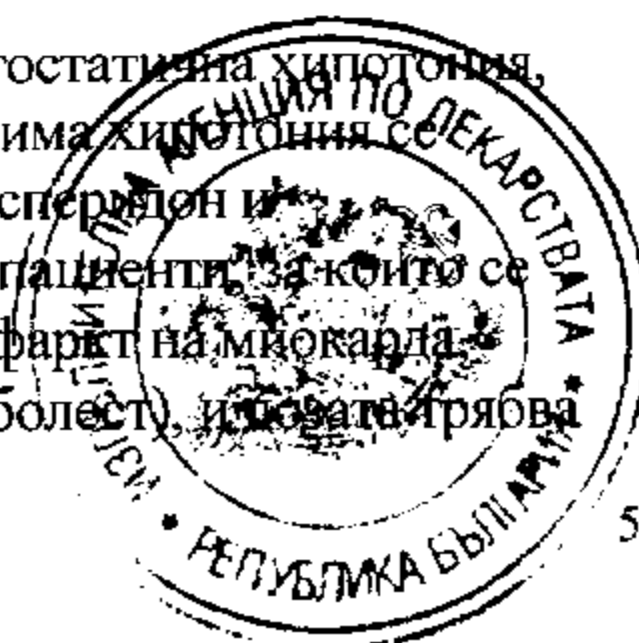 тостатична хипотония,
има хипотония се
сперидон и
пациенти, за които се
фаркт на миокарда
болест), и дозата трябва
5
АГЕНЦИЯ ПО ЛЕКАРСТВАТА
РЕПУБЛИКА БЪЛГАРИЯ